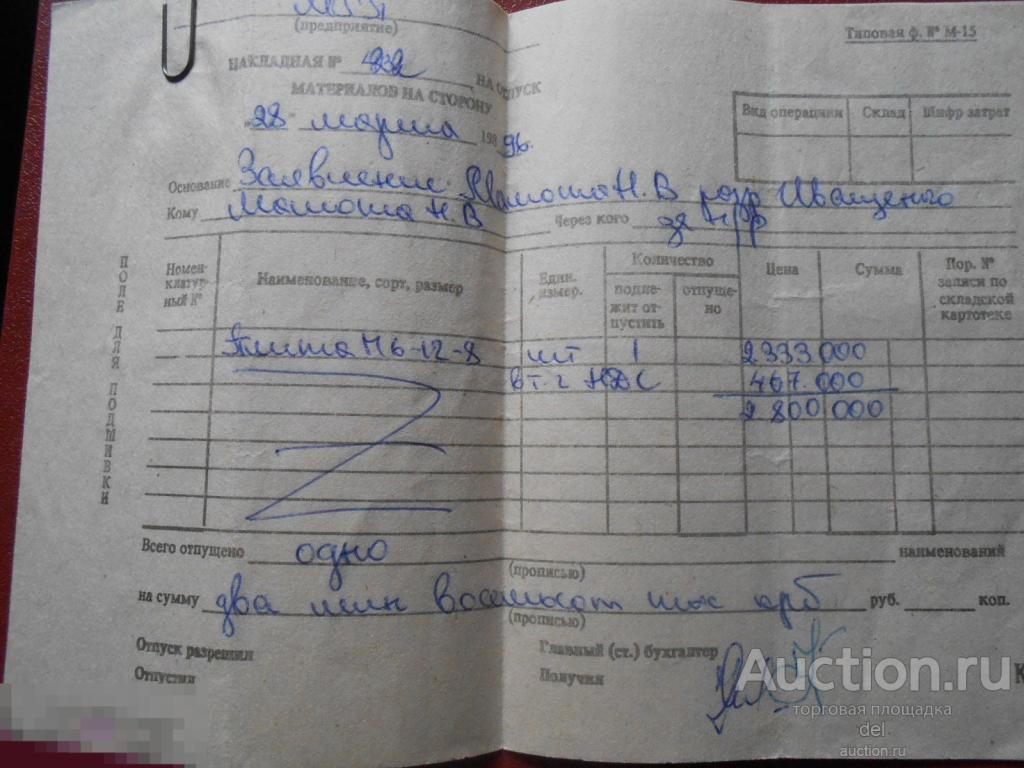 (предприятие)
Типовая ф. № М-15
НАКЛАДНАЯ № 422 НА ОТПУСК
МАТЕРИАЛОВ НА СТОРОНУ
"28" марта 198 96.
Вид операции Склад Шифр затрат
Основание Заявление Мамоша Н.В разр Иващенко
Кому Мамоша Н.В Через кого за н/р
ПОЛЕ ДЛЯ ПОДШИВКИ
Номен-
клатур-
ный №
Наименование, сорт, размер
Един.
измер.
Количество
подле-
жит от-
пустить
отпуще-
но
Цена
Сумма
Пор. №
записи по
складской
картотеке
Плита Н 6-12-8 шт 1 2333 000
В т. ч НДС 467.000
2 800 000
Всего отпущено одно наименований
(прописью)
на сумму два млн восемьсот тыс крб руб. коп.
(прописью)
Отпуск разрешил Главный (ст.) бухгалтер
Отпустил Получил
Auction.ru
торговая площадка
del.
auction.ru